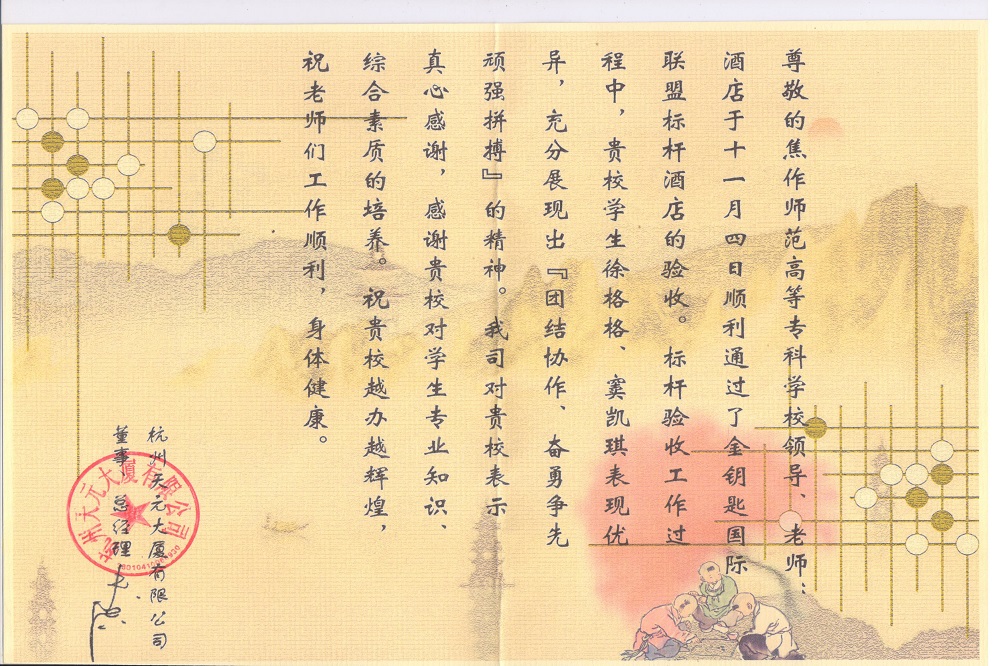 尊敬的焦作师范高等专科学校领导、老师：
酒店于十一月四日顺利通过了金钥匙国际
联盟标杆酒店的验收。标杆验收工作过
程中，贵校学生徐格格、窦凯琪表现优
异，充分展现出『团结协作、奋勇争先
顽强拼搏』的精神。我司对贵校表示
真心感谢，感谢贵校对学生专业知识、
综合素质的培养。祝贵校越办越辉煌，
祝老师们工作顺利，身体健康。
杭州天元大厦有限公司
董事、总经理
杭州天元大厦有限公司